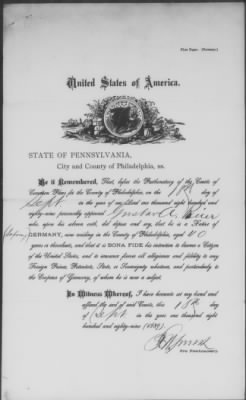 First Paper. (Germany.)
United States of America.
STATE OF PENNSYLVANIA,
City and County of Philadelphia, ss.
Be it Remembered, That, before the Prothonotary of the Courts of
Common Pleas for the County of Philadelphia, on the 18th day of
Sept. in the year of our Lord one thousand eight hundred and
eighty-nine personally appeared Gustav A.
who, upon his solemn oath, did depose and say, that he is a Native of
GERMANY, now residing in the County of Philadelphia, aged 40
years or thereabout, and that it is BONA FIDE his intention to become a Citizen
of the United States, and to renounce forever all allegiance and fidelity to any
Foreign Prince, Potentate, State, or Sovereignty whatever, and particularly to the
Emperor of Germany, of whom he is now a subject.
In Witness Whereof, I have hereunto set my hand and
affixed the seal of said Courts, this 18th day
of Sept. in the year one thousand eight
hundred and eighty-nine (1889).
Pro Prothonotary.